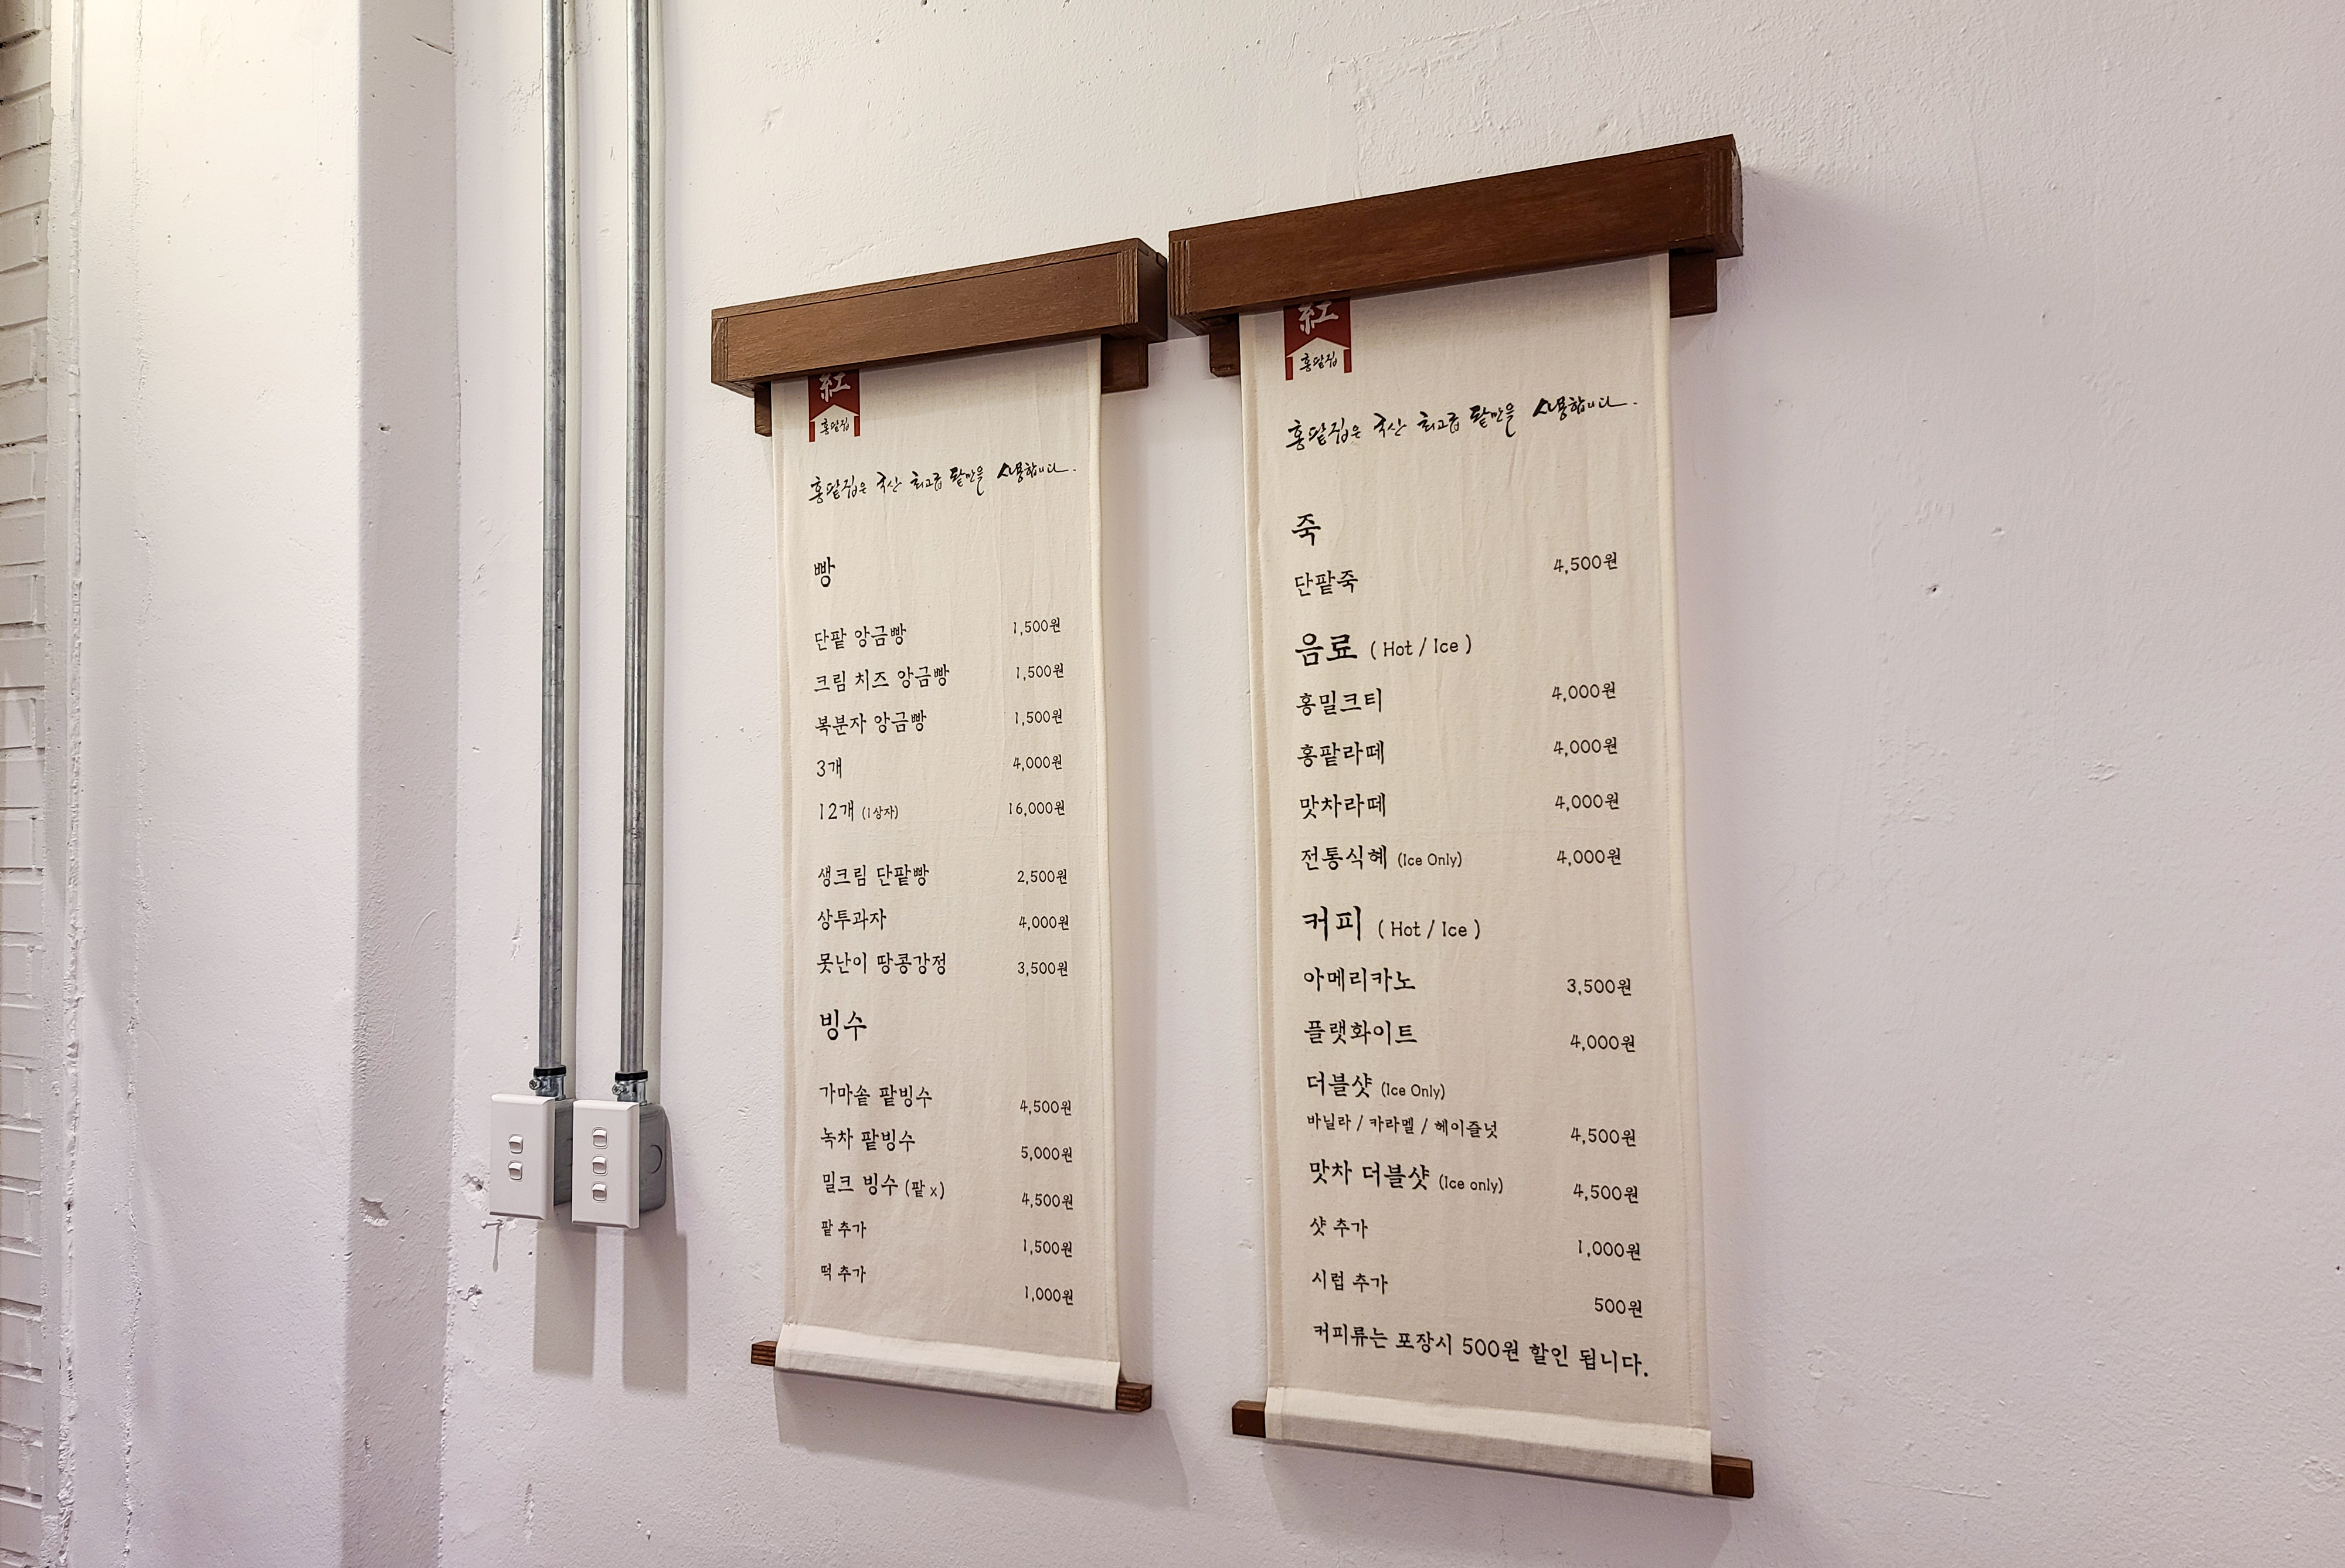 紅
홍팥집
홍팥집은 국산 최고급 팥만을 사용합니다.
빵
단팥 앙금빵 1,500원
크림 치즈 앙금빵 1,500원
복분자 앙금빵 1,500원
3개 4,000원
12개 (1상자) 16,000원
생크림 단팥빵 2,500원
상투과자 4,000원
못난이 땅콩강정 3,500원
빙수
가마솥 팥빙수 4,500원
녹차 팥빙수 5,000원
밀크 빙수 (팥 x) 4,500원
팥 추가 1,500원
떡 추가 1,000원
紅
홍팥집
홍팥집은 국산 최고급 팥만을 사용합니다.
죽
단팥죽 4,500원
음료 ( Hot / Ice )
홍밀크티 4,000원
홍팥라떼 4,000원
맛차라떼 4,000원
전통식혜 (Ice Only) 4,000원
커피 ( Hot / Ice )
아메리카노 3,500원
플랫화이트 4,000원
더블샷 (Ice Only)
바닐라 / 카라멜 / 헤이즐넛 4,500원
맛차 더블샷 (Ice only) 4,500원
샷 추가 1,000원
시럽 추가 500원
커피류는 포장시 500원 할인 됩니다.